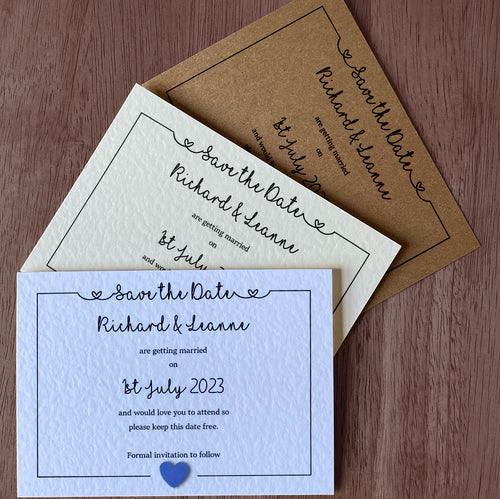 Save the Date
Richard & Leanne
are getting married
on
1st July 2023
and would love you to attend so
please keep this date free.
Formal invitation to follow
Save the Date
Richard & Leanne
are getting married
on
1st July 20
and would
Save the Date
Richard & Leanne
are getting married
on
1st July 202
and would